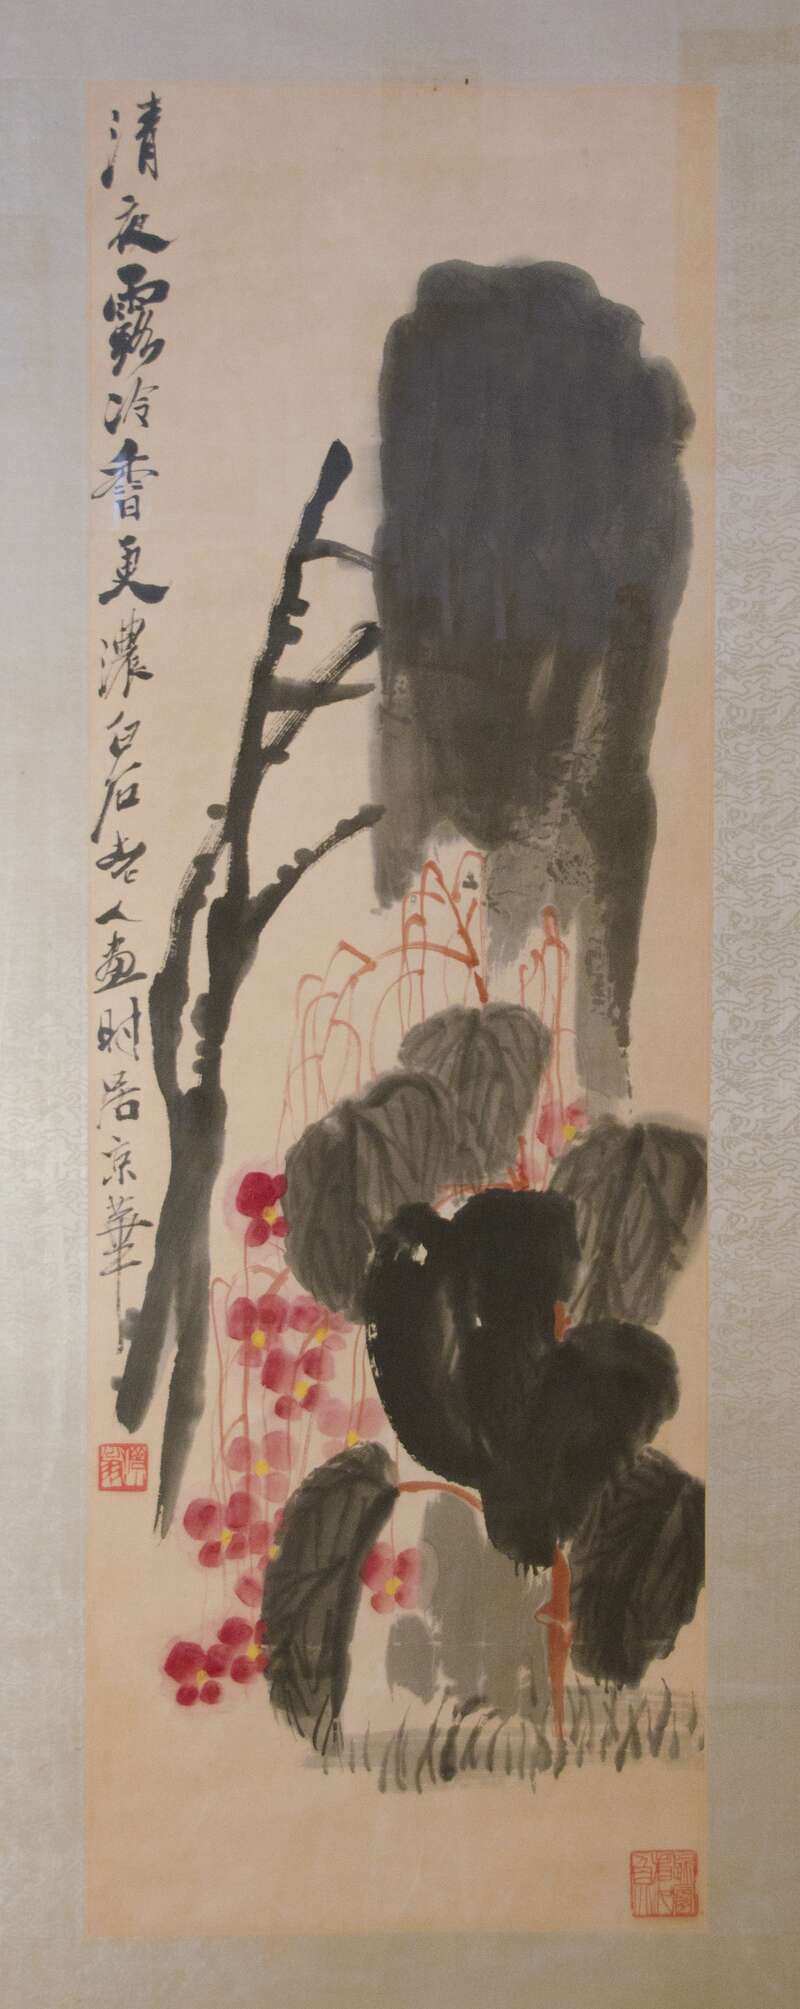 清夜露冷香更濃白石老人畫時居京華